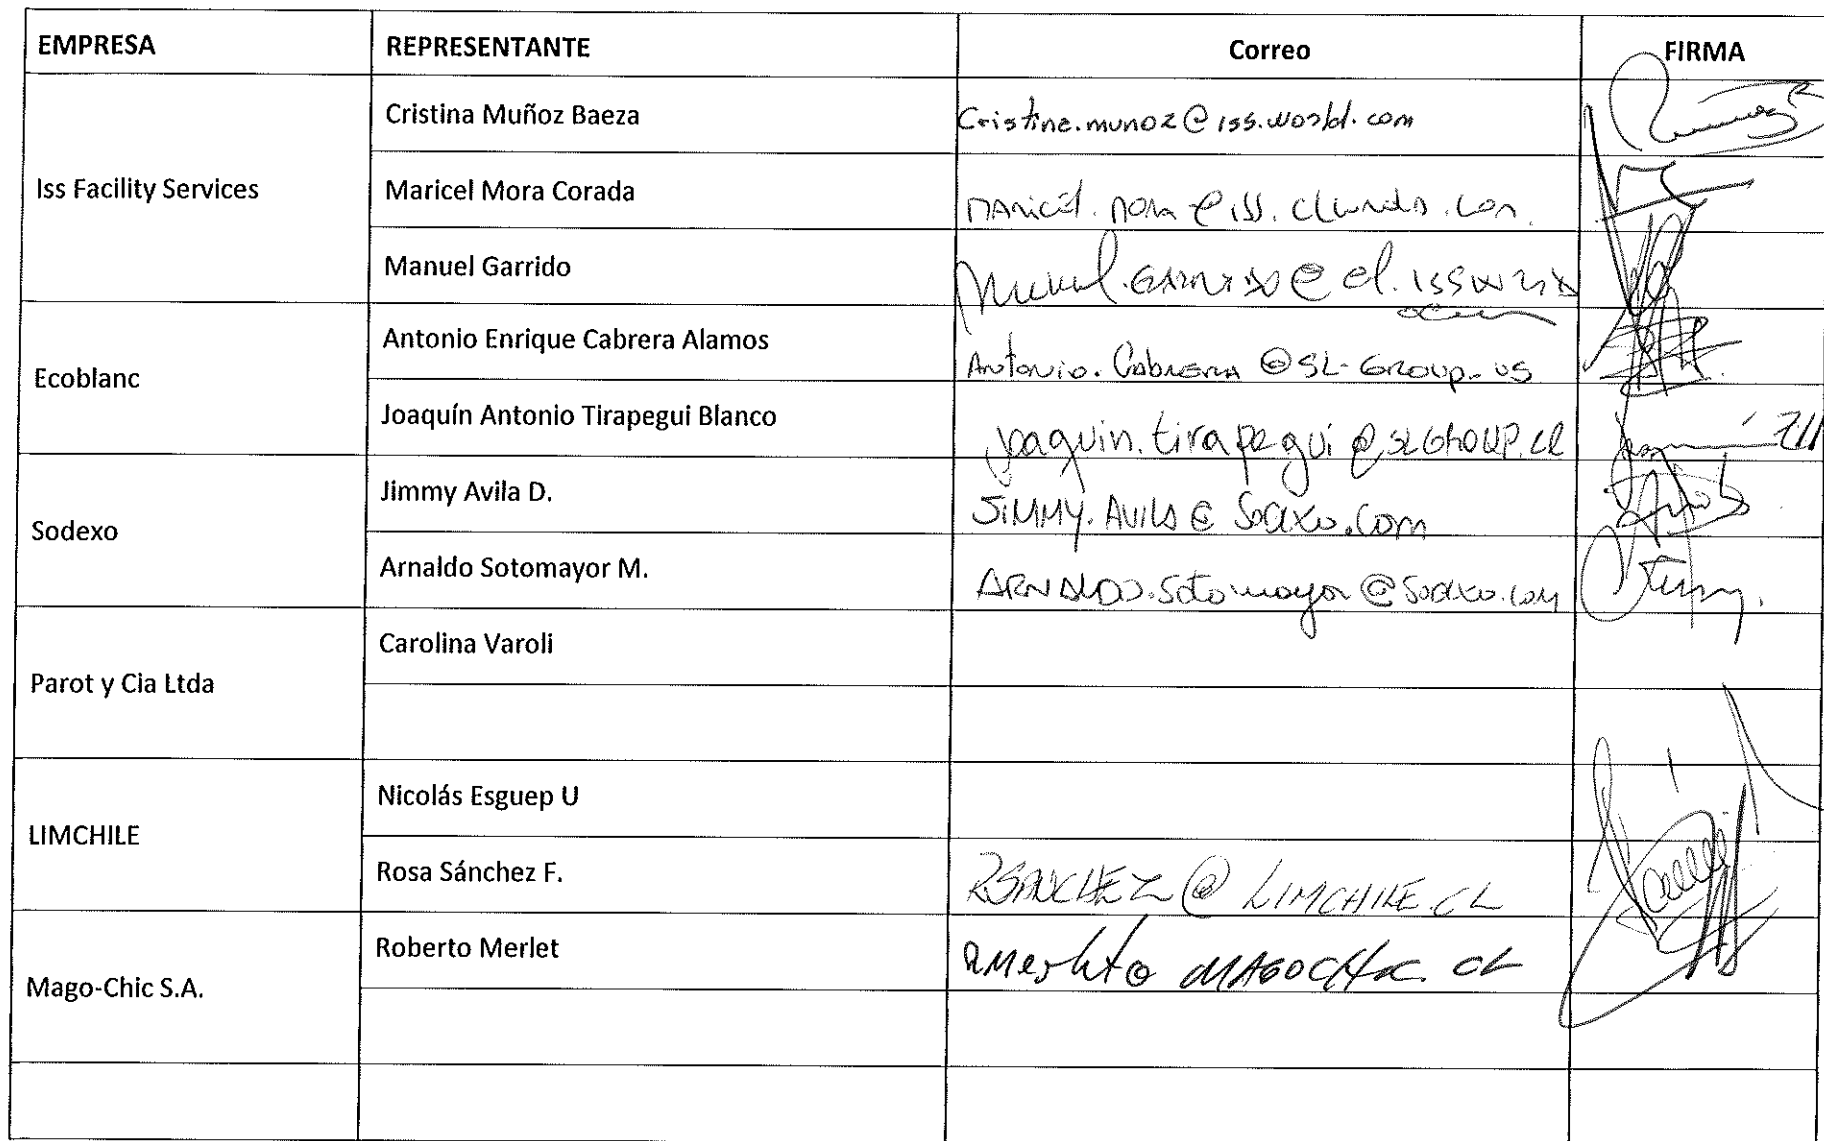 EMPRESA REPRESENTANTE Correo FIRMA
Iss Facility Services
Cristina Muñoz Baeza Cristina.munoz@iss.world.com
Maricel Mora Corada
Manuel Garrido
Ecoblanc
Antonio Enrique Cabrera Alamos Antonio.Cabrera @SL-Group-us
Joaquín Antonio Tirapegui Blanco joaquin.tirapegui@SLGROUP.CL
Sodexo
Jimmy Avila D. JIMMY.AVILA@Sodexo.Com
Arnaldo Sotomayor M. ARNALDO.Sotomayor@Sodexo.com
Parot y Cia Ltda
Carolina Varoli
LIMCHILE
Nicolás Esguep U
Rosa Sánchez F. RSANCHEZ@LIMCHILE.CL
Mago-Chic S.A.
Roberto Merlet RMerlet@MAGOCHIC.CL